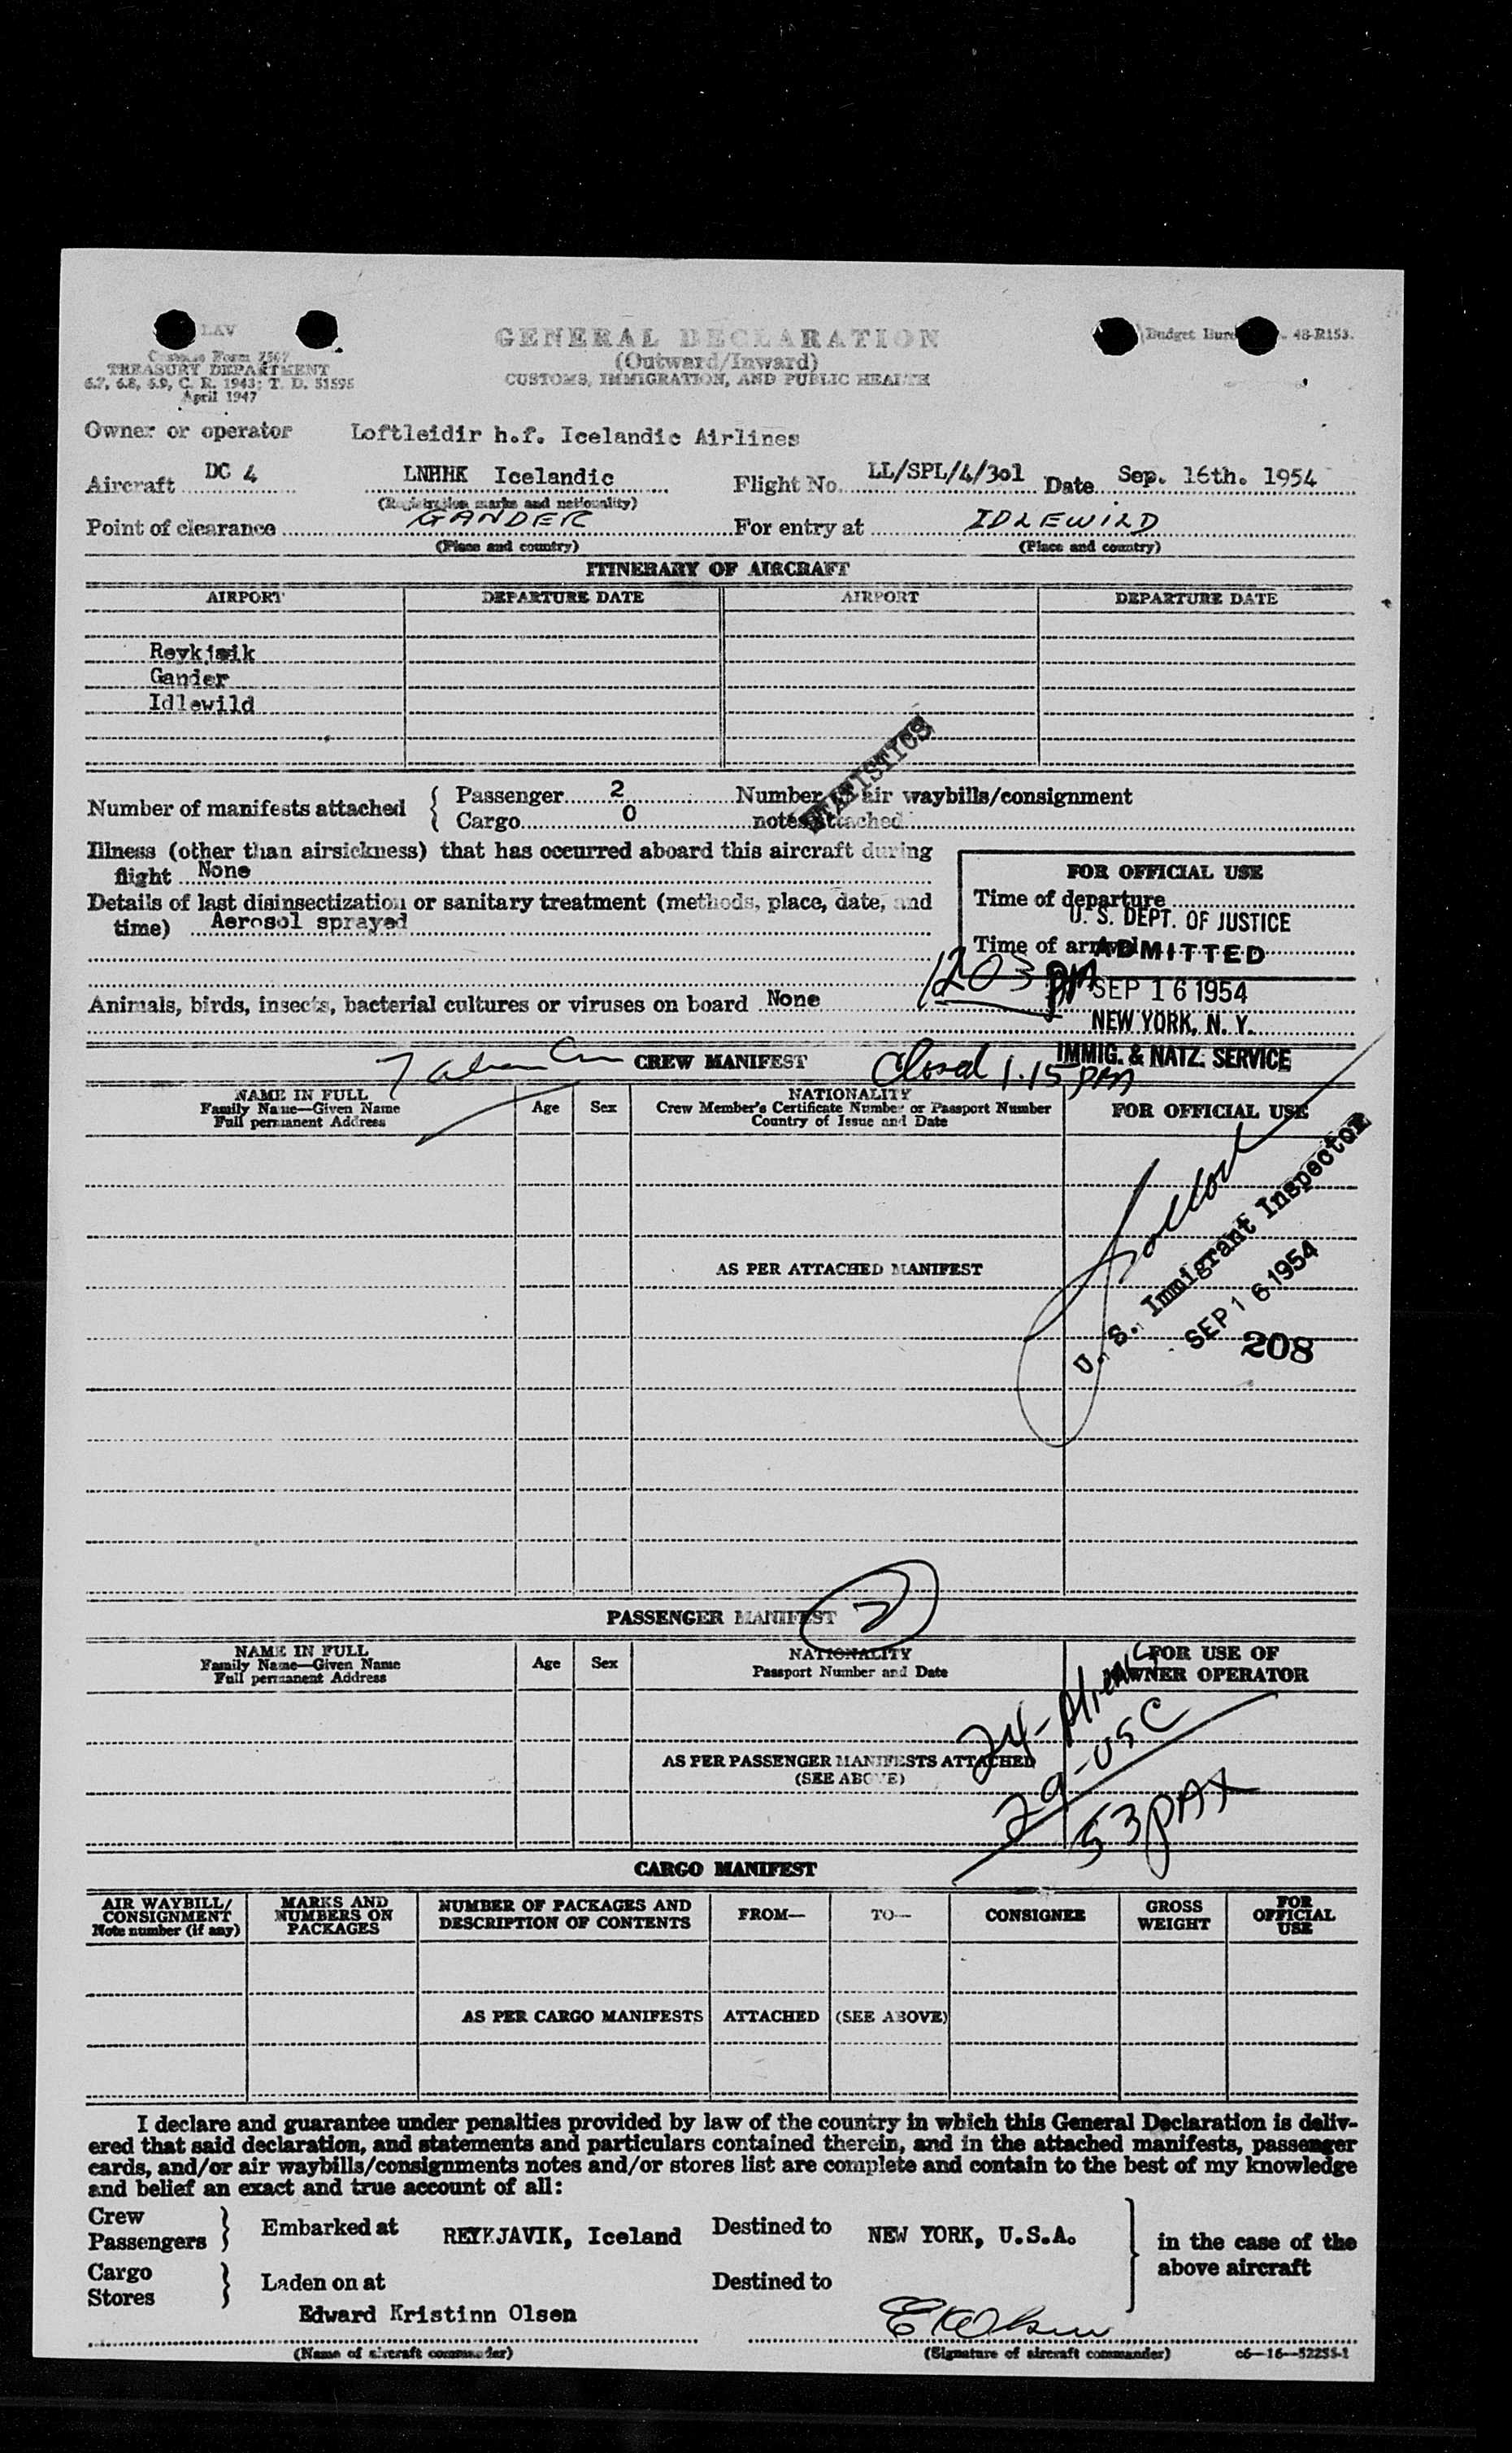 LAV
Customs Form 7507
TREASURY DEPARTMENT
6.7, 6.8, 6.9, C. R. 1943; T. D. 51595
April 1947
GENERAL DECLARATION
(Outward/Inward)
CUSTOMS, IMMIGRATION, AND PUBLIC HEALTH
Budget 48-R153.
Owner or operator Loftleidir h.f. Icelandic Airlines
Aircraft DC 4 LNHHK Icelandic Flight No. LL/SPL/4/301 Date Sep. 16th. 1954
(Registration marks and nationality)
Point of clearance GANDER For entry at IDLEWILD
(Place and country) (Place and country)
ITINERARY OF AIRCRAFT
AIRPORT DEPARTURE DATE AIRPORT DEPARTURE DATE
Reykjaik
Gander
Idlewild
STATISTICS
Number of manifests attached { Passenger 2 Number air waybills/consignment
Cargo 0 notes attached
Illness (other than airsickness) that has occurred aboard this aircraft during
flight None
Details of last disinsectization or sanitary treatment (methods, place, date, and
time) Aerosol sprayed
Animals, birds, insects, bacterial cultures or viruses on board None
FOR OFFICIAL USE
Time of departure
U. S. DEPT. OF JUSTICE
Time of arrival ADMITTED
1203 PM
SEP 16 1954
NEW YORK, N. Y.
IMMIG. & NATZ. SERVICE
7 CREW MANIFEST Closed 1.15 PM
NAME IN FULL
Family Name—Given Name
Full permanent Address
Age Sex
NATIONALITY
Crew Member's Certificate Number or Passport Number
Country of Issue and Date
FOR OFFICIAL USE
AS PER ATTACHED MANIFEST
U. S. Immigrant Inspector
SEP 16 1954
208
PASSENGER MANIFEST 2
NAME IN FULL
Family Name—Given Name
Full permanent Address
Age Sex
NATIONALITY
Passport Number and Date
FOR USE OF
OWNER OPERATOR
24-Aliens
29-USC
53 PAX
AS PER PASSENGER MANIFESTS ATTACHED
(SEE ABOVE)
CARGO MANIFEST
AIR WAYBILL/
CONSIGNMENT
Note number (if any)
MARKS AND
NUMBERS ON
PACKAGES
NUMBER OF PACKAGES AND
DESCRIPTION OF CONTENTS
FROM—
TO—
CONSIGNEE
GROSS
WEIGHT
FOR
OFFICIAL
USE
AS PER CARGO MANIFESTS ATTACHED (SEE ABOVE)
I declare and guarantee under penalties provided by law of the country in which this General Declaration is deliv-
ered that said declaration, and statements and particulars contained therein, and in the attached manifests, passenger
cards, and/or air waybills/consignments notes and/or stores list are complete and contain to the best of my knowledge
and belief an exact and true account of all:
Crew
Passengers } Embarked at REYKJAVIK, Iceland Destined to NEW YORK, U.S.A.
in the case of the
above aircraft
Cargo
Stores } Laden on at Destined to
Edward Kristinn Olsen EKOlsen
(Name of aircraft commander) (Signature of aircraft commander) c6—16—52255-1